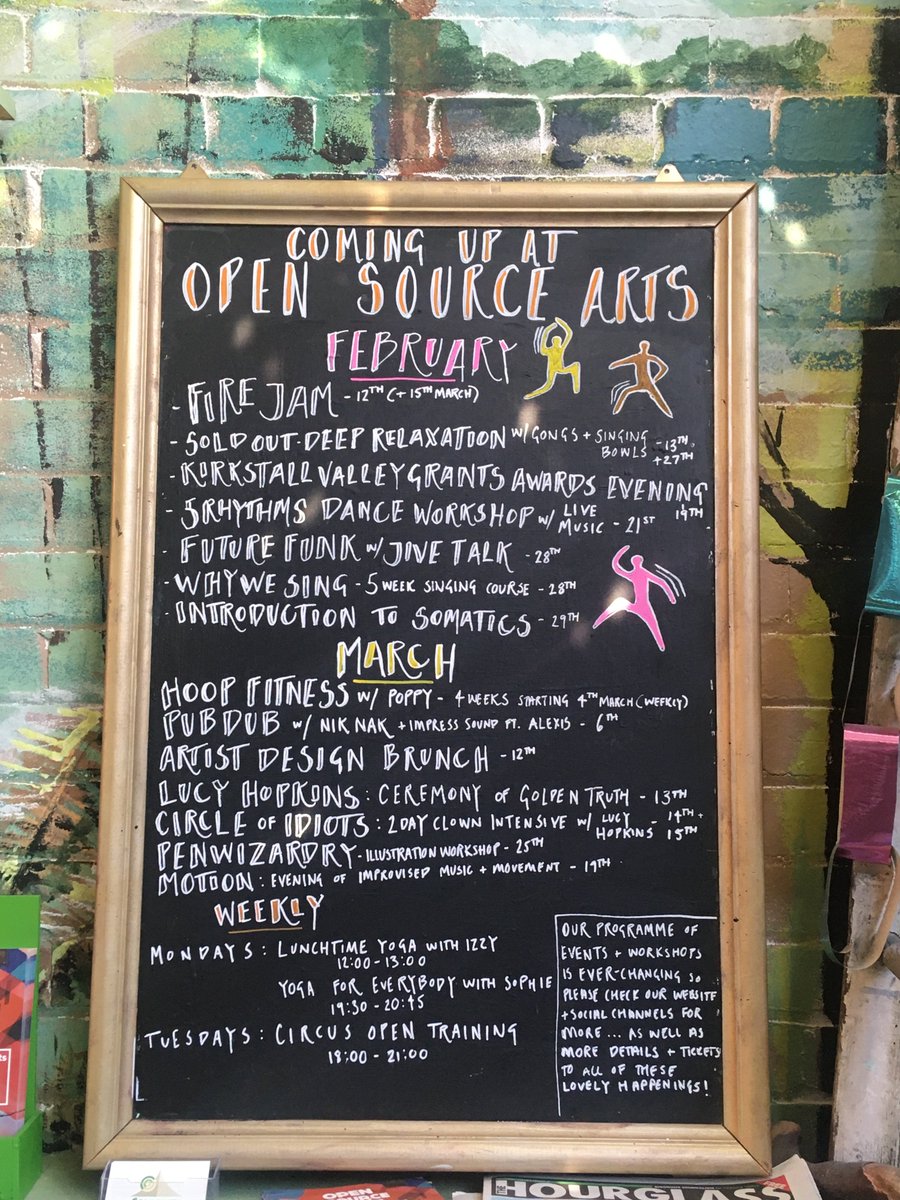 COMING UP AT
OPEN SOURCE ARTS
FEBRUARY
- FIRE JAM - 12TH (+ 15TH MARCH)
- SOLD OUT - DEEP RELAXATION W/ GONGS + SINGING BOWLS - 13TH + 27TH
- KIRKSTALL VALLEY GRANTS AWARDS EVENING 19TH
- 5RHYTHMS DANCE WORKSHOP W/ LIVE MUSIC - 21ST
- FUTURE FUNK W/ JIVE TALK - 28TH
- WHY WE SING - 5 WEEK SINGING COURSE - 28TH
- INTRODUCTION TO SOMATICS - 29TH
MARCH
HOOP FITNESS W/ POPPY - 4 WEEKS STARTING 4TH MARCH (WEEKLY)
PUB DUB W/ NIK NAK + IMPRESS SOUND FT. ALEXIS - 6TH
ARTIST DESIGN BRUNCH - 12TH
LUCY HOPKINS : CEREMONY OF GOLDEN TRUTH - 13TH
CIRCLE OF IDIOTS : 2 DAY CLOWN INTENSIVE W/ LUCY HOPKINS - 14TH + 15TH
PENWIZARDRY - ILLUSTRATION WORKSHOP - 25TH
MOTION : EVENING OF IMPROVISED MUSIC + MOVEMENT - 19TH
WEEKLY
MONDAYS : LUNCHTIME YOGA WITH IZZY
12:00 - 13:00
YOGA FOR EVERYBODY WITH SOPHIE
19:30 - 20:45
TUESDAYS : CIRCUS OPEN TRAINING
18:00 - 21:00
OUR PROGRAMME OF
EVENTS + WORKSHOPS
IS EVER-CHANGING SO
PLEASE CHECK OUR WEBSITE
+ SOCIAL CHANNELS FOR
MORE ... AS WELL AS
MORE DETAILS + TICKETS
TO ALL OF THESE
LOVELY HAPPENINGS!
OPEN
HOURGLASS